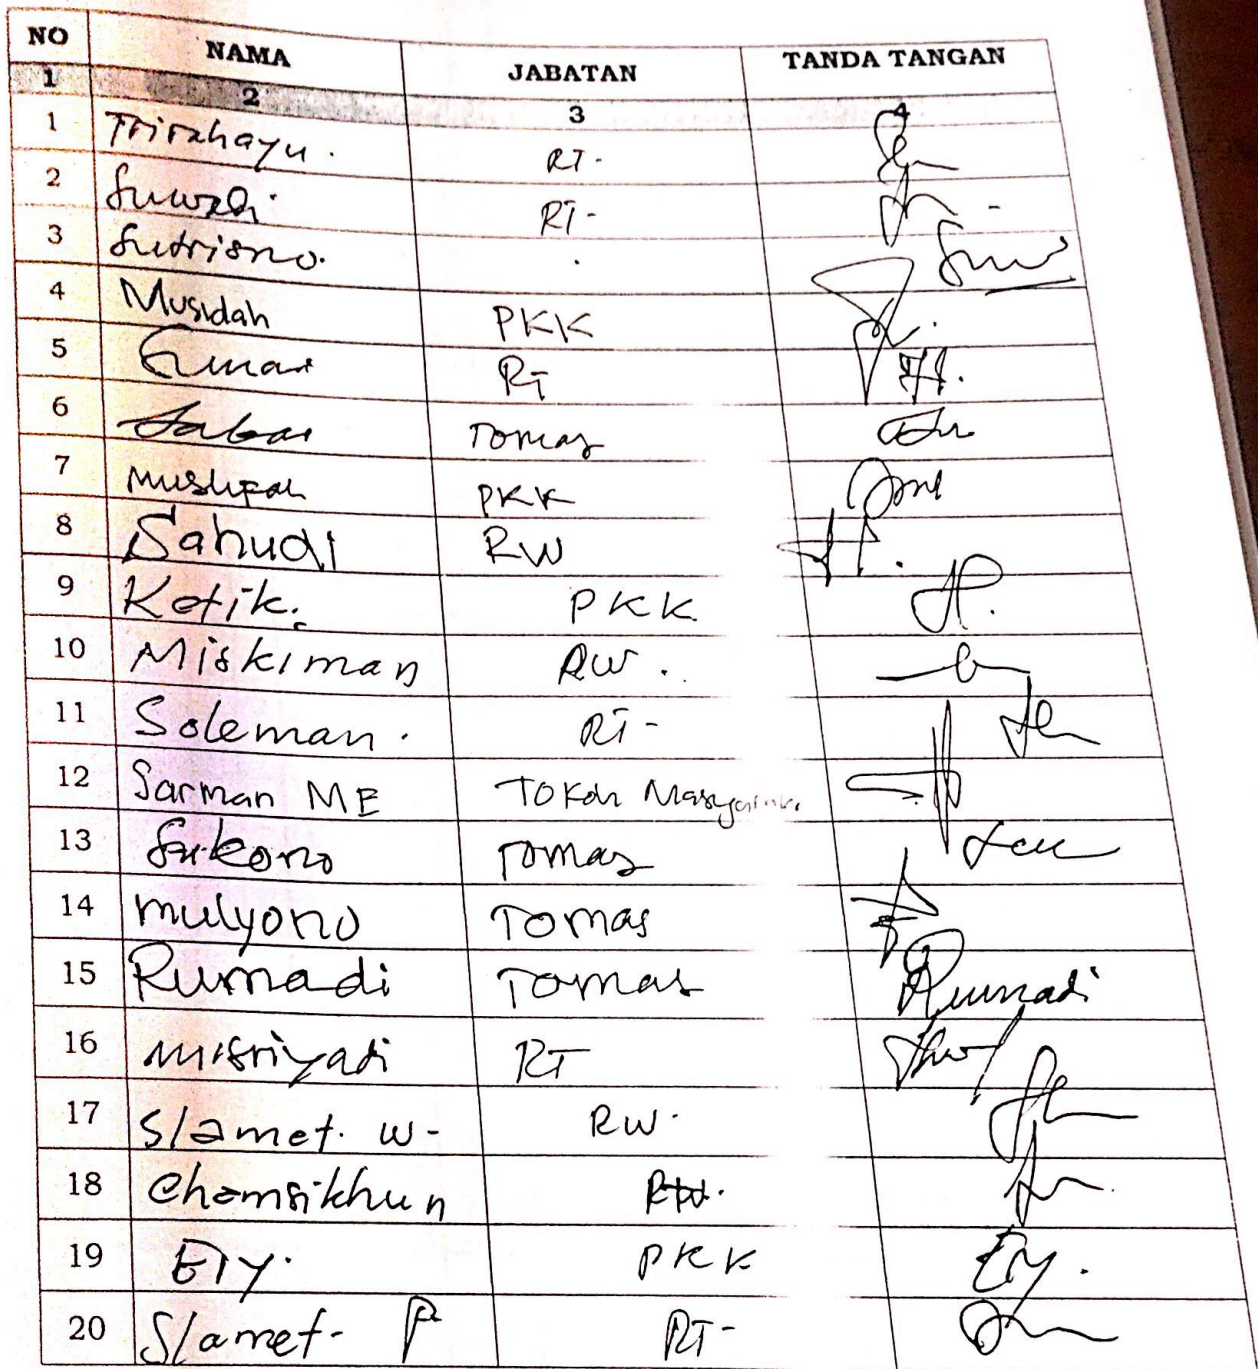 NO NAMA JABATAN TANDA TANGAN
1 2 3 4
1 Trirahayu. RT-
2 Suwadi. RT-
3 Sutrisno.
4 Musidah PKK
5 RT
6 Sabar Tomas
7 PKK
8 Sahudi RW
9 Kotik. PKK
10 Miskiman RW.
11 Soleman. RT-
12 Sarman ME TOKoh Masyarakat
13 Sukono Tomas
14 mulyono Tomas
15 Rumadi Tomas Rumadi
16 Misriyadi RT
17 Slamet. W- RW.
18 Chamsikhun
19 Ety. PKK Ety.
20 Slamet- P RT-